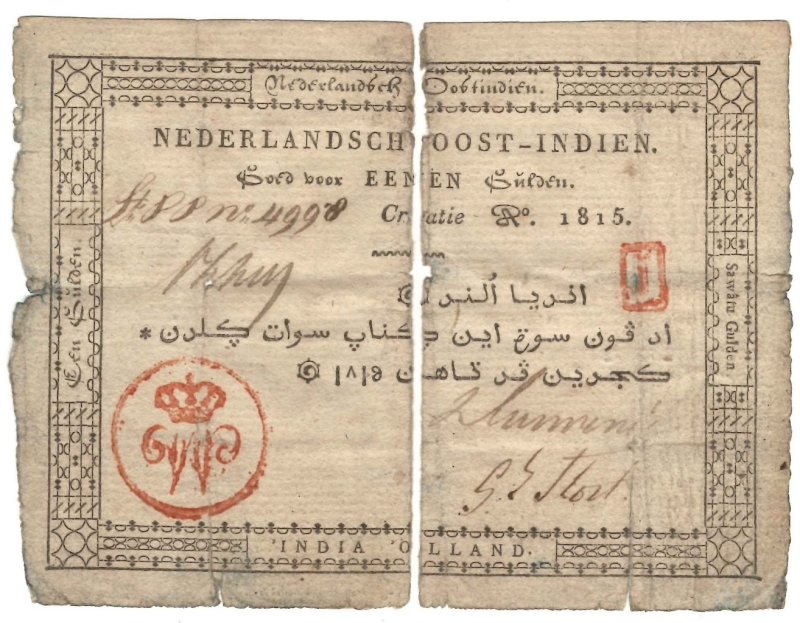 Nederlandsch Oostindien.
NEDERLANDSCH OOST-INDIEN.
Goed voor EENEN Gulden.
no 4998 Creatie Aº. 1815.
1
انديا ألند
اد ڤون سورة اين سوات ݢلدن *
كجدين ڤد تاهن ١٨١٥
Een Gulden.
Sawátu Gulden
W
'INDIA 'OLLAND.